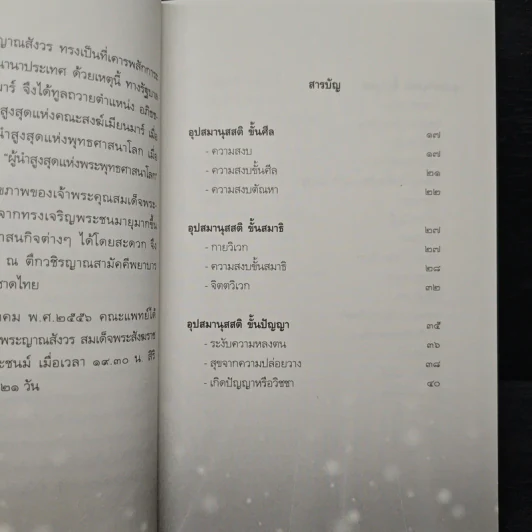 ญาณสังวร ทรงเป็นที่เคารพสักการะ
นานาประเทศ ด้วยเหตุนี้ ทางรัฐบาล
มาร์ จึงได้ทูลถวายตำแหน่ง อภิธช
สูงสุดแห่งคณะสงฆ์เมียนมาร์ เมื่อ
นำสูงสุดแห่งพุทธศาสนาโลก เมื่อ
"ผู้นำสูงสุดแห่งพระพุทธศาสนาโลก"
ขภาพของเจ้าพระคุณสมเด็จพระ
จากทรงเจริญพระชนมายุมากขึ้น
าสนกิจต่างๆ ได้โดยสะดวก จึง
ณ ตึกวชิรญาณสามัคคีพยาบาร
ชาดไทย
าคม พ.ศ.๒๕๕๖ คณะแพทย์ได้
พระญาณสังวร สมเด็จพระสังฆราช
ะชนม์ เมื่อเวลา ๑๙.๓๐ น. สิริ
๒๑ วัน
สารบัญ
อุปสมานุสสติ ขั้นศีล ๑๗
- ความสงบ ๑๗
- ความสงบขั้นศีล ๒๑
- ความสงบตัณหา ๒๒
อุปสมานุสสติ ขั้นสมาธิ ๒๗
- กายวิเวก ๒๗
- ความสงบขั้นสมาธิ ๒๘
- จิตตวิเวก ๓๒
อุปสมานุสสติ ขั้นปัญญา ๓๕
- ระงับความหลงตน ๓๖
- สุขจากความปล่อยวาง ๓๘
- เกิดปัญญาหรือวิชชา ๔๐